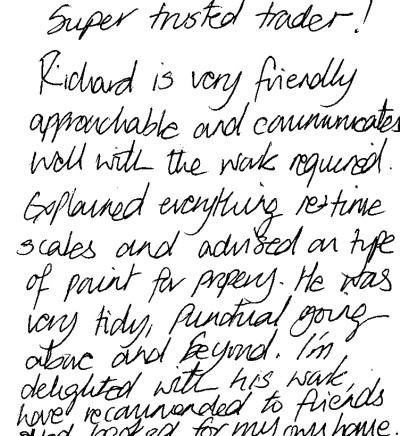 Super trusted trader!
Richard is very friendly
approachable and communicates
well with the work required.
Explained everything re-time
scales and advised on type
of paint for propery. He was
very tidy, punctual going
above and beyond. I'm
delighted with his work,
have recommended to friends
and booked for my own home.